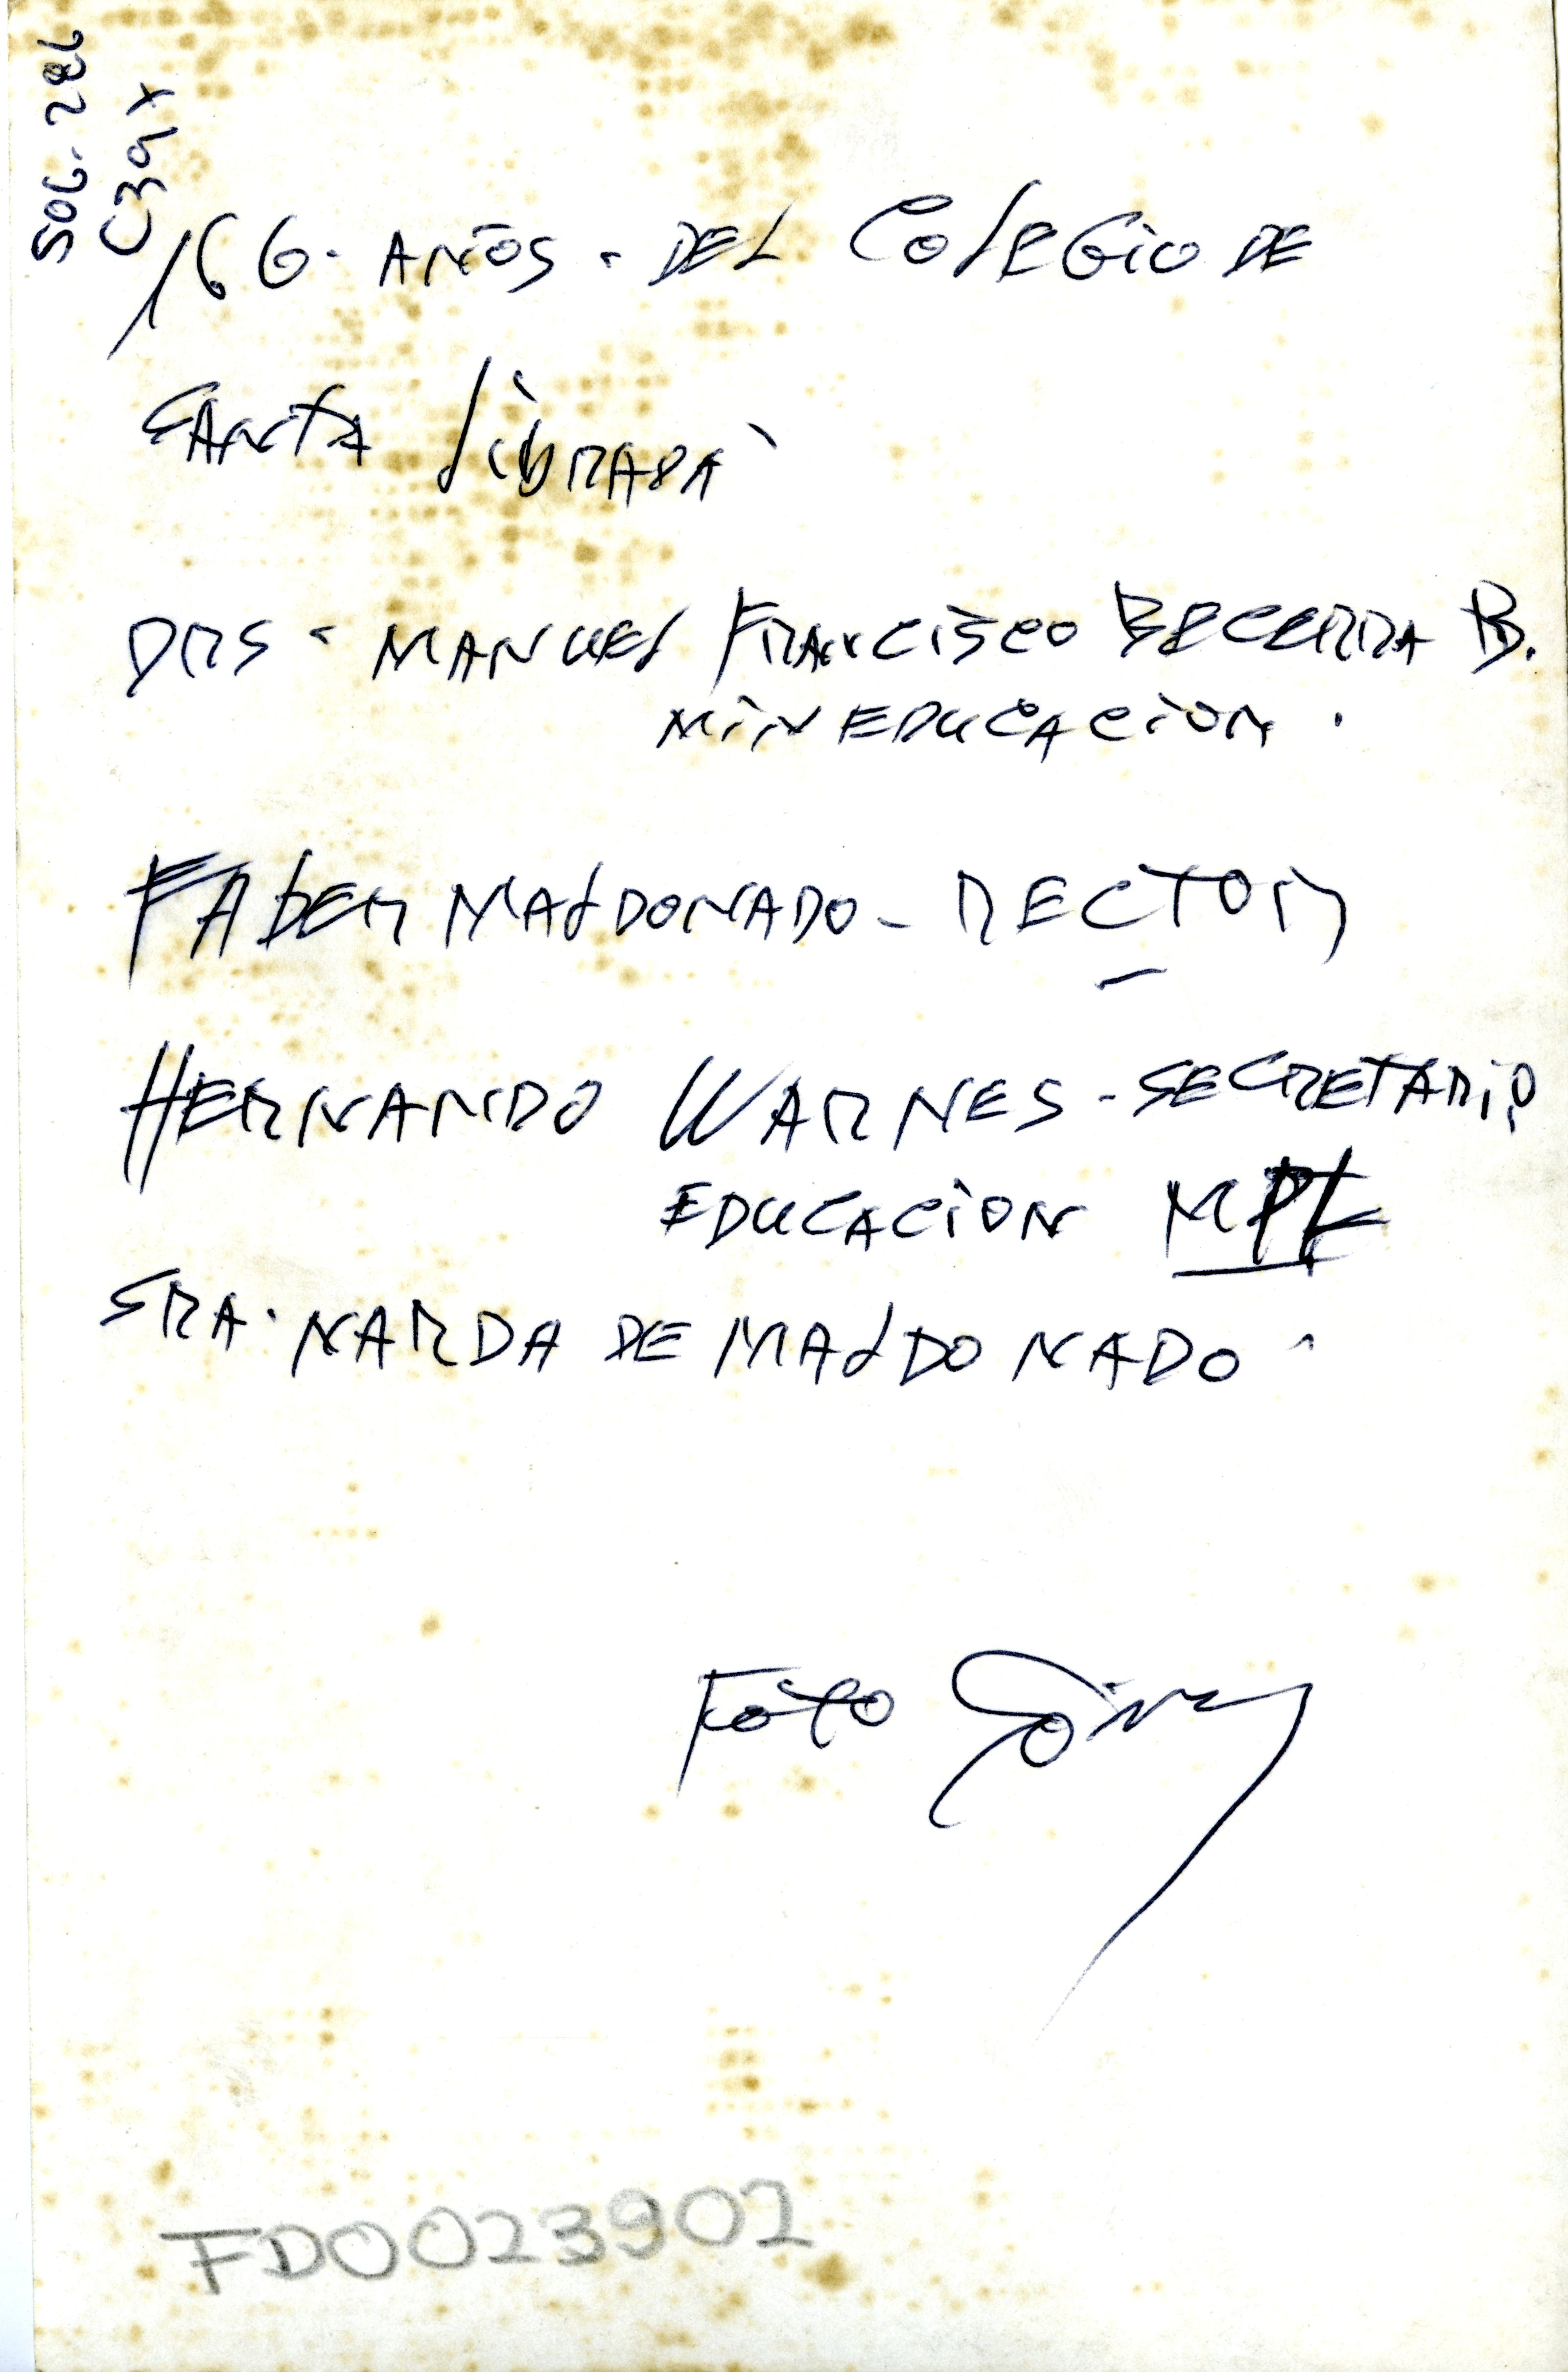 506.286
C397
166. AÑOS. DEL COLEGIO DE
SANTA LIBRADA
DRS - MANUEL FRANCISCO BECERRA B.
MINEDUCACION.
FABER MALDONADO - RECTOR
HERNANDO WARNES - SECRETARIO
EDUCACION MPL
SRA. NARDA DE MALDONADO
FOTO
FD0023902